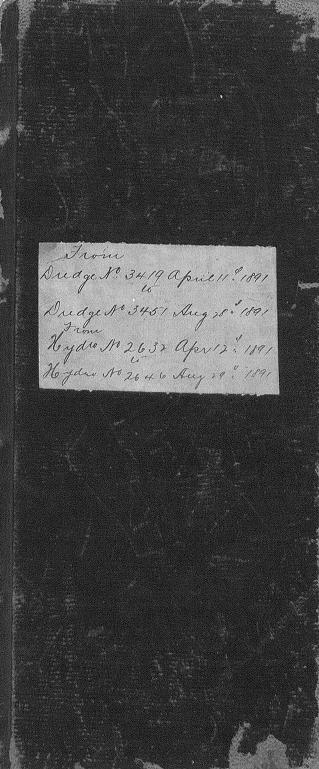 From
Dredge No 3419 April 11" 1891
to
Dredge No 3451 Aug 28" 1891
From
Hydro No 2632 Apr 12" 1891
to
Hydro No 2646 Aug 29" 1891